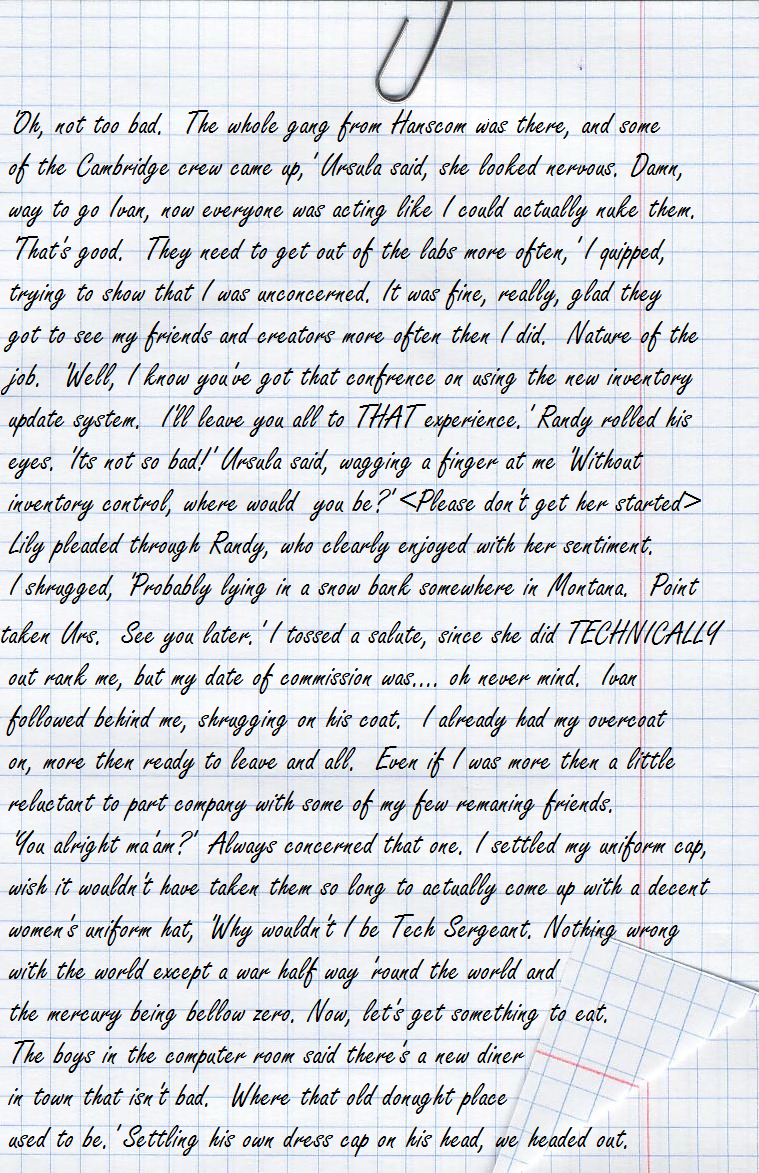 'Oh, not too bad.  The whole gang from Hanscom was there, and some
of the Cambridge crew came up,' Ursula said, she looked nervous. Damn,
way to go Ivan, now everyone was acting like I could actually nuke them.
'That's good.  They need to get out of the labs more often,' I quipped,
trying to show that I was unconcerned. It was fine, really, glad they
got to see my friends and creators more often then I did.  Nature of the
job.  'Well, I know you've got that confrence on using the new inventory
update system.  I'll leave you all to THAT experience.' Randy rolled his
eyes. 'Its not so bad!' Ursula said, wagging a finger at me 'Without
inventory control, where would  you be?' <Please don't get her started>
Lily pleaded through Randy, who clearly enjoyed with her sentiment.
I shrugged, 'Probably lying in a snow bank somewhere in Montana.  Point
taken Urs.  See you later.' I tossed a salute, since she did TECHNICALLY
out rank me, but my date of commission was.... oh never mind.  Ivan
followed behind me, shrugging on his coat.  I already had my overcoat
on, more then ready to leave and all.  Even if I was more then a little
reluctant to part company with some of my few remaning friends.
'You alright ma'am?'  Always concerned that one. I settled my uniform cap,
wish it wouldn't have taken them so long to actually come up with a decent
women's uniform hat, 'Why wouldn't I be Tech Sergeant. Nothing wrong
with the world except a war half way 'round the world and
the mercury being bellow zero. Now, let's get something to eat.
The boys in the computer room said there's a new diner
in town that isn't bad.  Where that old donught place
used to be.' Settling his own dress cap on his head, we headed out.